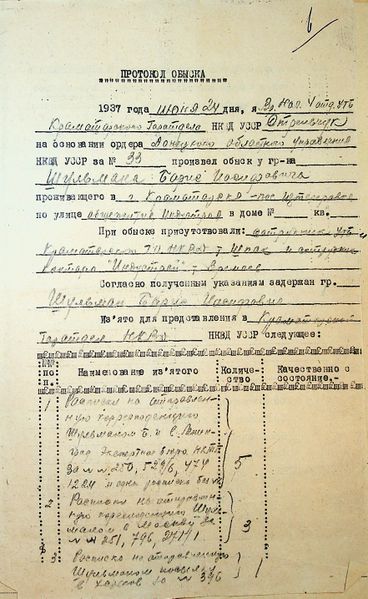 6
ПРОТОКОЛ ОБЫСКА
1937 года июня 24 дня, я
Краматорского Горотдела НКВД УССР
на основании ордера Донецкого областного управления
НКВД УССР за № 33 произвел обыск у гр-на
Шульмана Бориса Иосифовича
проживающего в г. Краматорске
по улице общежитие Индустрой в доме № кв.
При обыске присутствовали: сотрудник
Краматорского НКВД т. Шпак и
"Индустрой" т.
Согласно полученным указаниям задержан гр.
Шульман Борис Иосифович
Из'ято для представления в Краматорский
Горотдел НКВД НКВД УССР следующее:
№№ по п.п. Наименование из'ятого Количество Качественно состояние.
1 Расписки на отправленную корреспонденцию
Шульманом Б. И. в Ленинград Экспертное бюро НКТП
за №№ 250, 5296, 474
5
2 Расписки на отправленную корреспонденцию Шульманом в Москву за
№№ 251, 796, 2711
3
3 Расписка на отправленную
Шульманом
в Харьков за № 396
1